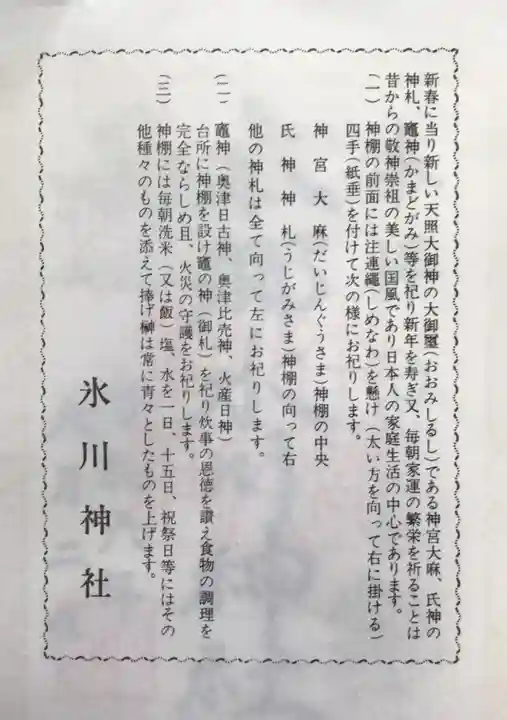 新春に当り新しい天照大御神の大御璽(おおみしるし)である神宮大麻、氏神の
神札、竈神(かまどがみ)等を祀り新年を寿ぎ又、毎朝家運の繁栄を祈ることは
昔からの敬神崇祖の美しい国風であり日本人の家庭生活の中心であります。
(一) 神棚の前面には注連縄(しめなわ)を懸け(太い方を向って右に掛ける)
四手(紙垂)を付けて次の様にお祀りします。
神宮大麻(だいじんぐうさま)神棚の中央
氏神神札(うじがみさま)神棚の向って右
他の神札は全て向って左にお祀りします。
(二) 竈神(奥津日古神、奥津比売神、火産日神)
台所に神棚を設け竈の神(御札)を祀り炊事の恩徳を讃え食物の調理を
完全ならしめ且、火災の守護をお祀りします。
(三) 神棚には毎朝洗米(又は飯)塩、水を一日、十五日、祝祭日等にはその
他種々のものを添えて捧げ榊は常に青々としたものを上げます。
氷川神社